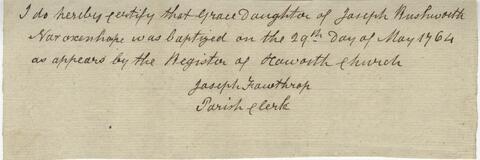 I do hereby certify that Grace Daughter of Joseph Rushworth
Nar oxenhope was baptized on the 29th Day of May 1764
as appears by the Register of Haworth Church
Joseph Fawthrop
Parish Clerk